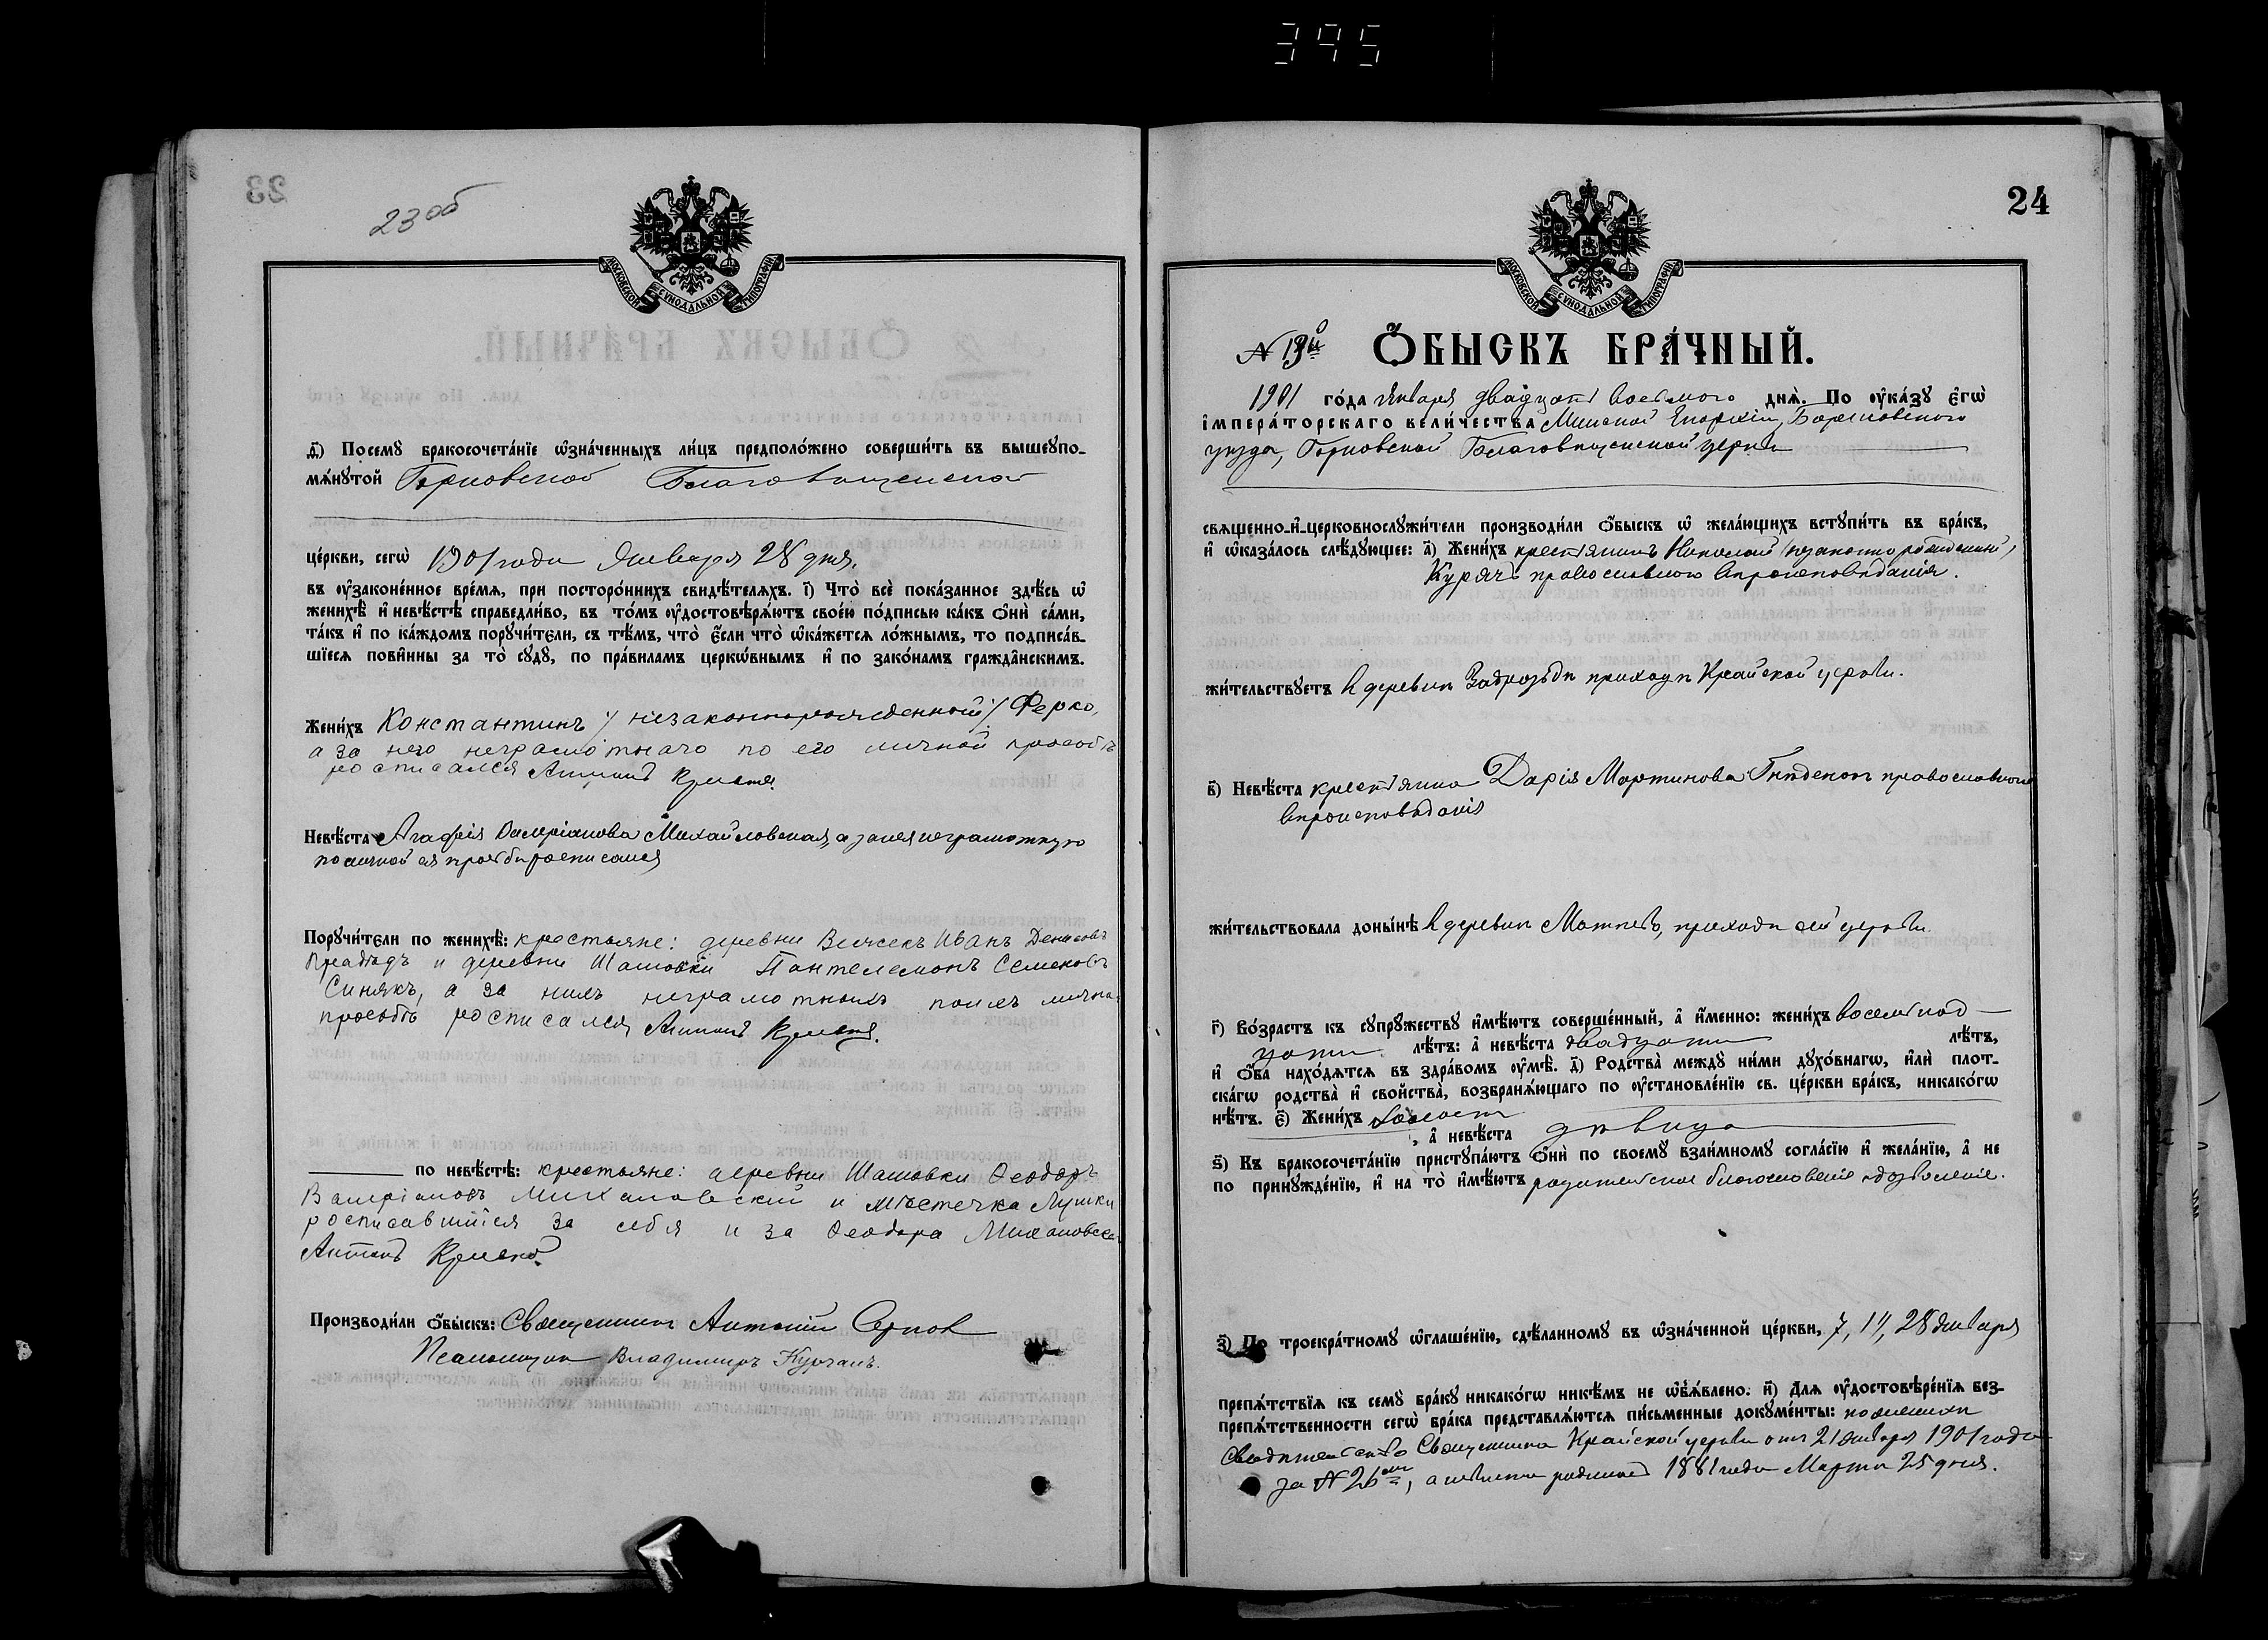 395
23
23 об
МОСКОВСКОЙ СѴНОДАЛЬНОЙ ТИПОГРАФІИ
ѳ҃) Посемꙋ бракосочета́нїе ѡ҆зна́ченныхъ ли́цъ предполо́жено соверши́ть въ вышеꙋпо-
мѧ́нꙋтой Горновской Благовѣщенской
це́ркви, сегѡ̀ 1901 года Января 28 дня,
въ ᲂу҆законе́нное вре́мѧ, при посторо́ннихъ свидѣ́телѧхъ. і҃) Что̀ всѐ пока́занное здѣ́сь ѡ҆
женихѣ̀ и҆ невѣ́стѣ справедли́во, въ то́мъ ᲂу҆достовѣрѧ́ютъ свое́ю по́дписью ка́къ ѻ҆нѝ са́ми,
та́къ и҆ по ка́ждомъ порꙋчи́тели, съ тѣ́мъ, что̀ є҆́сли что̀ ѡ҆ка́жетсѧ ло́жнымъ, то подписа́в-
шїесѧ пови́нны за то̀ сꙋдꙋ̀, по пра́виламъ церко́внымъ и҆ по зако́намъ гражда́нскимъ.
Жени́хъ Константинъ /незаконнорожденный/ Ферко,
а за него неграмотнаго по его личной просьбѣ
росписался Антонъ
Невѣ́ста Агафія Валеріанова Михайловская, а за нея неграмотную
по личной ея просьбѣ росписался
Порꙋчи́тели по женихѣ̀: крестьяне: деревни Иванъ Денисовъ
и деревни Шашовки Пантелемонъ Семеновъ
Синякъ, а за нихъ неграмотныхъ по ихъ лично
просьбѣ росписался Антонъ
по невѣ́стѣ: крестьяне: деревни Шашовки Ѳеодоръ
Валеріановъ Михаловскій и мѣстечка
росписавшійся за себя и за Ѳеодора Михаловска
Антонъ
Производи́ли ѻ҆́быскъ: Священникъ Антоній
Псаломщикъ Владимиръ Курганъ.
24
МОСКОВСКОЙ СѴНОДАЛЬНОЙ ТИПОГРАФІИ
N 19й ѻ҆́быскъ бра́чный.
1901 го́да Января двадцать восьмого днѧ̀. По ᲂу҆ка́зꙋ є҆гѡ̀
і҆мпера́торскаго вели́чества Минской Епархіи, Борисовского
уѣзда, Горновской Благовѣщенской церкви
свѧще́нно-и҆-церковнослꙋжи́тели производи́ли ѻ҆́быскъ ѡ҆ жела́ющихъ встꙋпи́ть въ бра́къ,
и҆ ѡ҆каза́лось слѣ́дꙋющее: а҃) Жени́хъ крестьянинъ Николай /незаконнорожденный/
Курячъ православного вѣроисповѣданія.
жи́тельствꙋетъ въ деревнѣ Задроздьи прихода Крайской церкви.
в҃) Невѣ́ста крестьянка Дарія Мартинова православного
вѣроисповѣданія
жи́тельствовала доны́нѣ въ деревнѣ прихода сей церкви.
г҃) Во́зрастъ къ сꙋпрꙋ́жествꙋ и҆мѣ́ютъ соверше́нный, а҆ и҆́менно: жени́хъ восемнад-
цати лѣ́тъ: а҆ невѣ́ста двадцати лѣ́тъ,
и҆ ѻ҆́ба нахо́дѧтсѧ въ здра́вомъ ᲂу҆мѣ̀. д҃) Родства̀ междꙋ̀ ни́ми дꙋхо́внагѡ, и҆лѝ плот-
ска́гѡ родства̀ и҆ свойства̀, возбранѧ́ющаго по ᲂу҆становле́нїю св. це́ркви бра́къ, никако́гѡ
нѣ́тъ. є҃) Жени́хъ холостъ
, а҆ невѣ́ста дѣвица
ѕ҃) Къ бракосочета́нїю пристꙋпа́ютъ ѻ҆нѝ по своемꙋ̀ взаи́мномꙋ согла́сїю и҆ жела́нїю, а҆ не
по принꙋжде́нїю, и҆ на то̀ и҆мѣ́ютъ родительское благословеніе и дозволеніе.
з҃) По троекра́тномꙋ ѡ҆глаше́нїю, сдѣ́ланномꙋ въ ѡ҆зна́ченной це́ркви, 7, 14, 28 Января
препѧ́тствїѧ къ семꙋ̀ бра́кꙋ никако́гѡ никѣ́мъ не ѡ҆б̾ѧ́влено. и҃) Длѧ ᲂу҆достовѣре́нїѧ без-
препѧ́тственности сегѡ̀ бра́ка представлѧ́ютсѧ пи́сьменные докꙋме́нты: по женихѣ
свидѣтельство Священника Крайской церкви отъ 21 Января 1901 года
за N 26мъ, а невѣста родилась 1881 года Марта 25 дня.